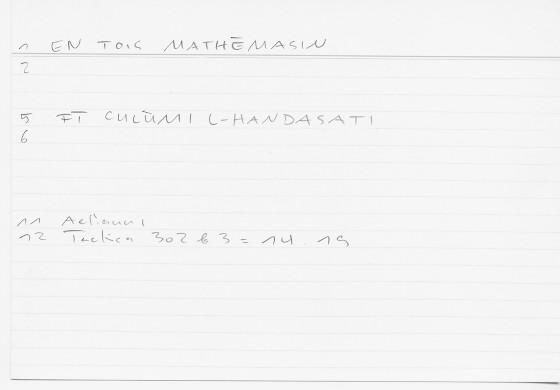 1 EN TOIS MATHĒMASIN
2
5 FĪ CULŪMI L-HANDASATI
6
11 Aeliani
12 Tactica 302 b 3 = 14.19